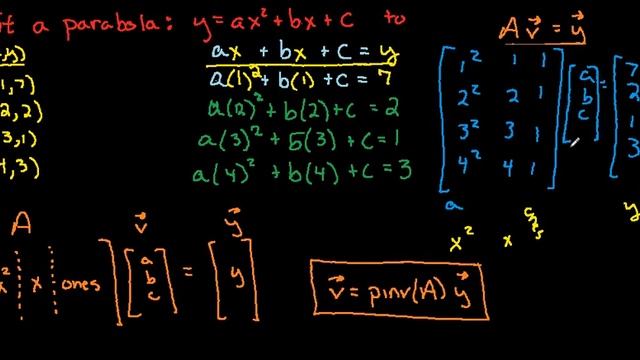 it a parabola: y=ax²+bx+c to
,y)
1,7)
2,2)
3,1)
4,3)
ax + bx + c = y
a(1)²+b(1)+c=7
a(2)²+b(2)+c=2
a(3)²+b(3)+c=1
a(4)²+b(4)+c=3
A v⃗ = y⃗
1² 1 1 a 7
2² 2 1 b = 2
3² 3 1 c 1
4² 4 1 3
a
x² x y
A v⃗ y⃗
x² x ones a b c = y
v⃗ = pinv(A) y⃗